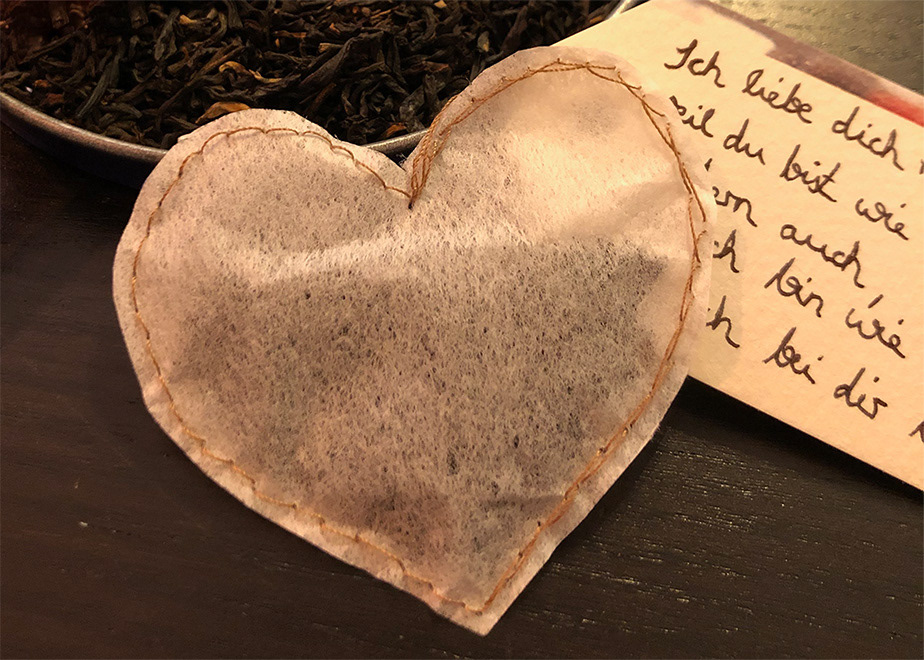 Ich liebe dich
du bist wie
auch
bin wie
bei dir